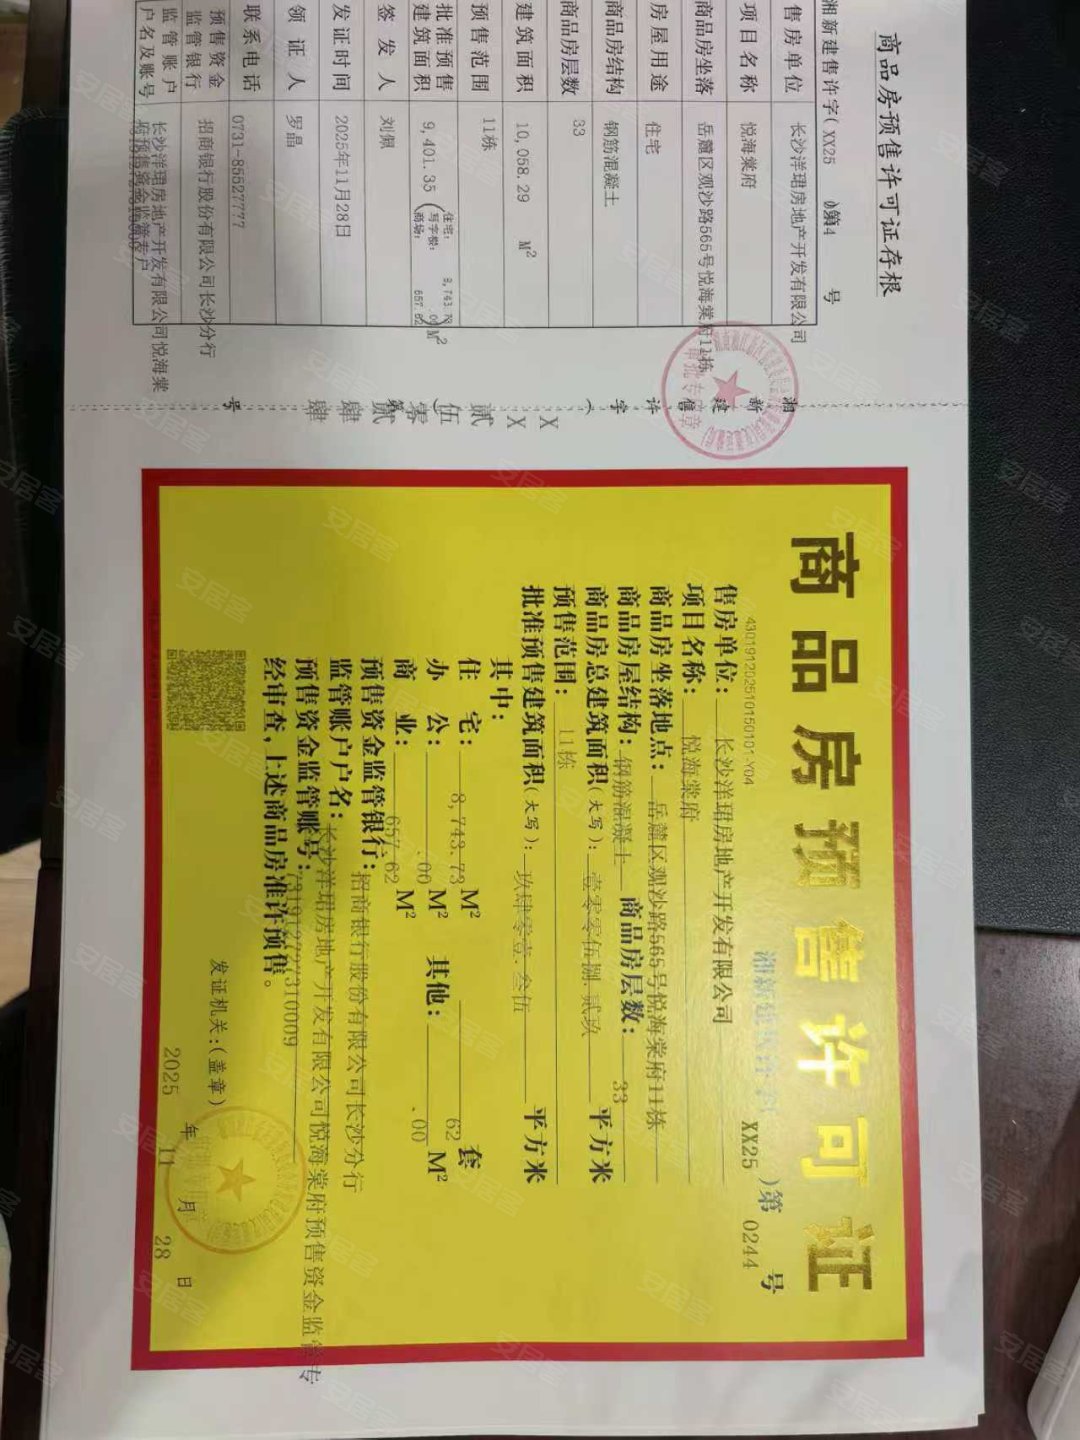 商品房预售许可证存根
湘新建售许字( XX25 )第 0244 号
售房单位 长沙洋珺房地产开发有限公司
项目名称 悦海棠府
商品房坐落 岳麓区观沙路565号悦海棠府11栋
房屋用途 住宅
商品房结构 钢筋混凝土
商品房层数 33
建筑面积 10,058.29 M²
预售范围 11栋
批准预售建筑面积 9,401.35 (住宅: 8,743.73 写字楼: .00 商场: 657.62) M²
签发人 刘佩
发证时间 2025年11月28日
领证人 罗晶
联系电话 0731-85527777
预售资金监管银行 招商银行股份有限公司长沙分行
监管账户户名及账号 长沙洋珺房地产开发有限公司悦海棠府预售资金监管专户
湘新建售许字( XX贰伍 )第 零贰肆肆 号
商品房预售许可证
湘新建售许字( XX25 )第 0244 号
430191202510150101-Y04
售房单位: 长沙洋珺房地产开发有限公司
项目名称: 悦海棠府
商品房坐落地点: 岳麓区观沙路565号悦海棠府11栋
商品房屋结构: 钢筋混凝土 商品房层数: 33
商品房总建筑面积(大写): 壹零零伍捌.贰玖 平方米
预售范围: 11栋
批准预售建筑面积(大写): 玖肆零壹.叁伍 平方米
其中:
住宅: 8,743.73 M² 62 套
办公: .00 M² 其他: .00 M²
商业: 657.62 M²
预售资金监管银行: 招商银行股份有限公司长沙分行
监管账户户名: 长沙洋珺房地产开发有限公司悦海棠府预售资金监管专
预售资金监管账号: 731912727310009
经审查，上述商品房准许预售。
发证机关:(盖章)
2025 年 11 月 28 日
安居客